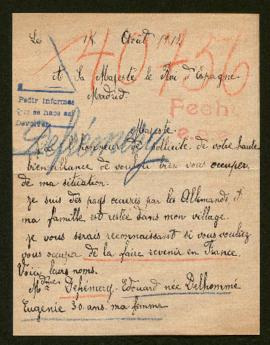 Le 15 Août 191
140456
A Sa Majesté le Roi d'Espagne
Madrid.
Pedir informes
que se hace así
Devolver
Fecha
Majesté
J'ai l'honneur de sollicité de votre haute
bienveillance de vouloir bien vous occuper
de ma situation.
Je suis des pays occupés par les Allemands et
ma famille est restée dans mon village.
Je vous serais reconnaissant si vous vouliez
vous occuper de la faire revenir en France.
Voici leurs noms.
Edouard née Delhomme
Eugénie 30 ans. ma femme.